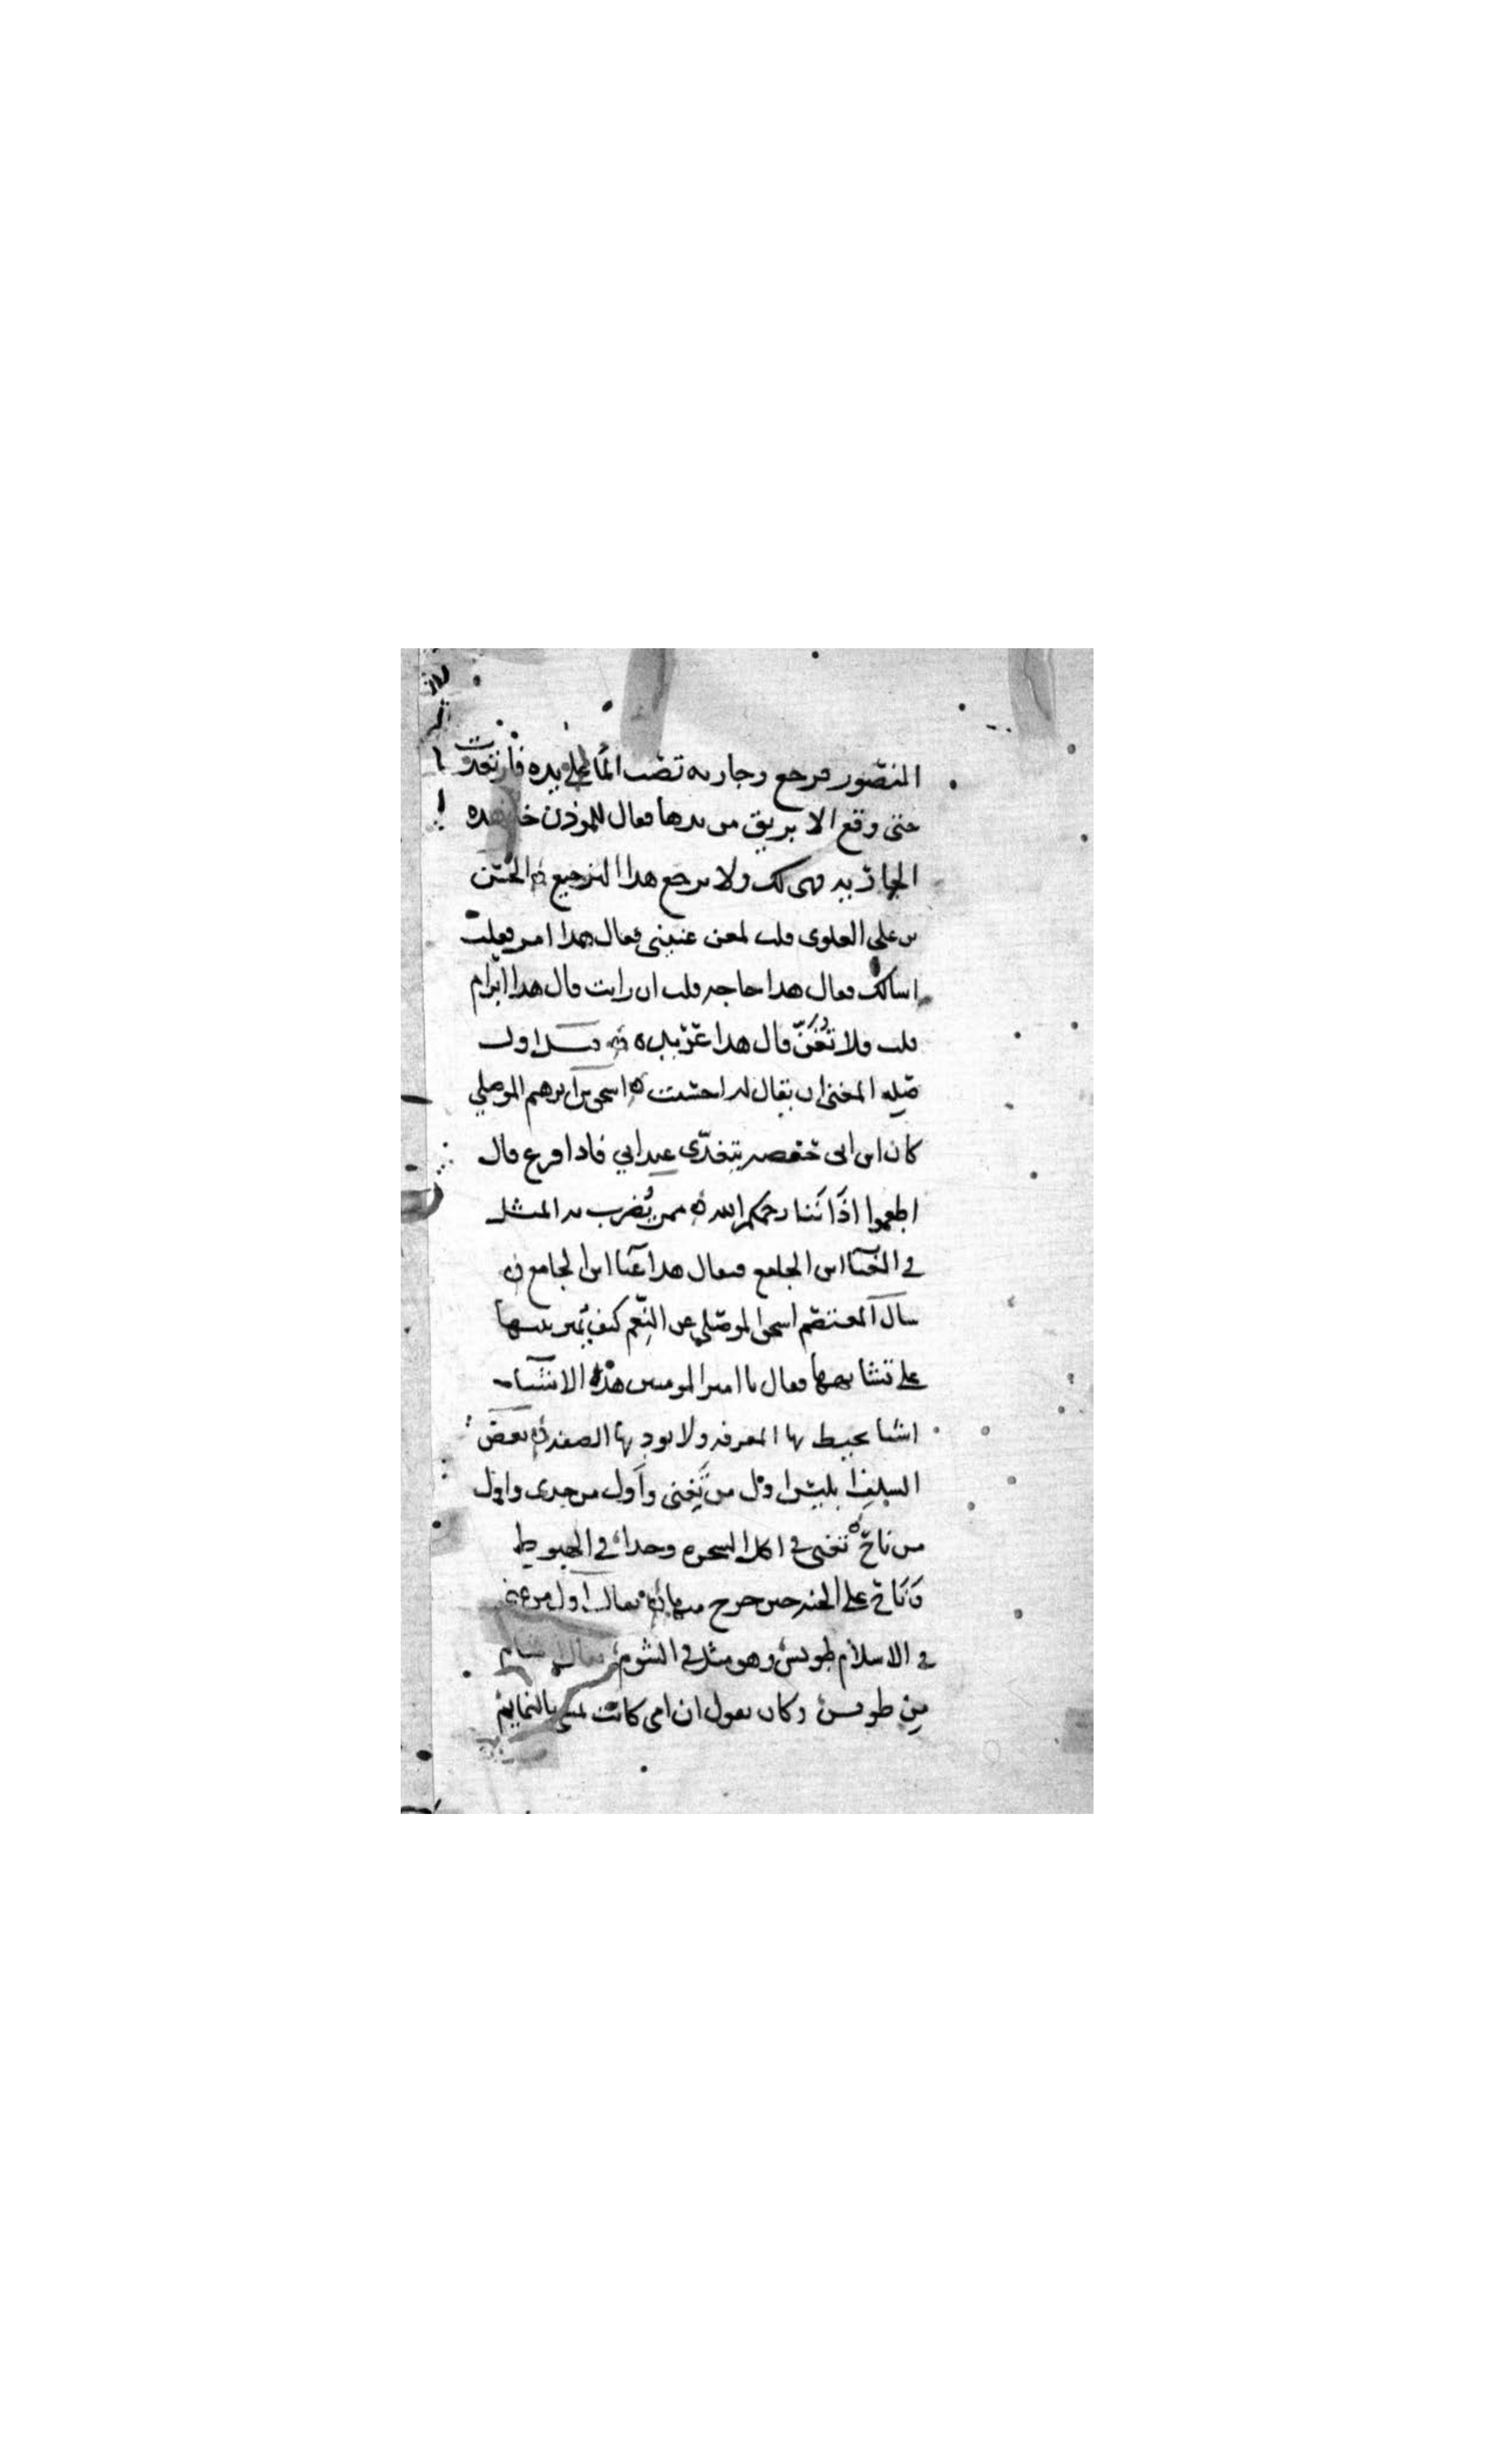 المنصور فرجع وجاريه تصب الما على يده فارتعدت
حتى وقع الابريق من يدها فقال للموذن خذ هذه
الجاريه فهى لك ولا ترجع هذا الترجيع الحسن
بن على العلوى قلت لمغن غننى فقال هذا امر فقلت
اسالك فقال هذا حاجه قلت ان رايت قال هذا ابرام
قلت فلا تغن قال هذا عربده اول
صله المغنى ان يقال له احسنت اسحق بن ابرهيم الموصلي
كان ابن ابى يتغدى عند ابي فاذا فرغ قال
اطعموا اذاننا رحمكم الله ممن يضرب به المثل
في الغنا ابن الجامع فيقال هذا غنا ابن الجامع
سال المعتصم اسحق الموصلي عن النغم كيف يميز بينها
على تشابهها فقال يا امير المومنين هذه الاشيا
اشيا يحيط بها المعرفه ولا يودبها الصفه بعض
السلف ابليس اول من تغنى واول من حدى واول
من ناح تغنى في اكل الشجره وحدا في الهبوط
وناح على الجنه حين خرج منها يقال اول من غنى
في الاسلام طويس وهو مثل في الشوم يقال اشام
من طويس وكان يقول ان امى كانت تمشى بالنمايم